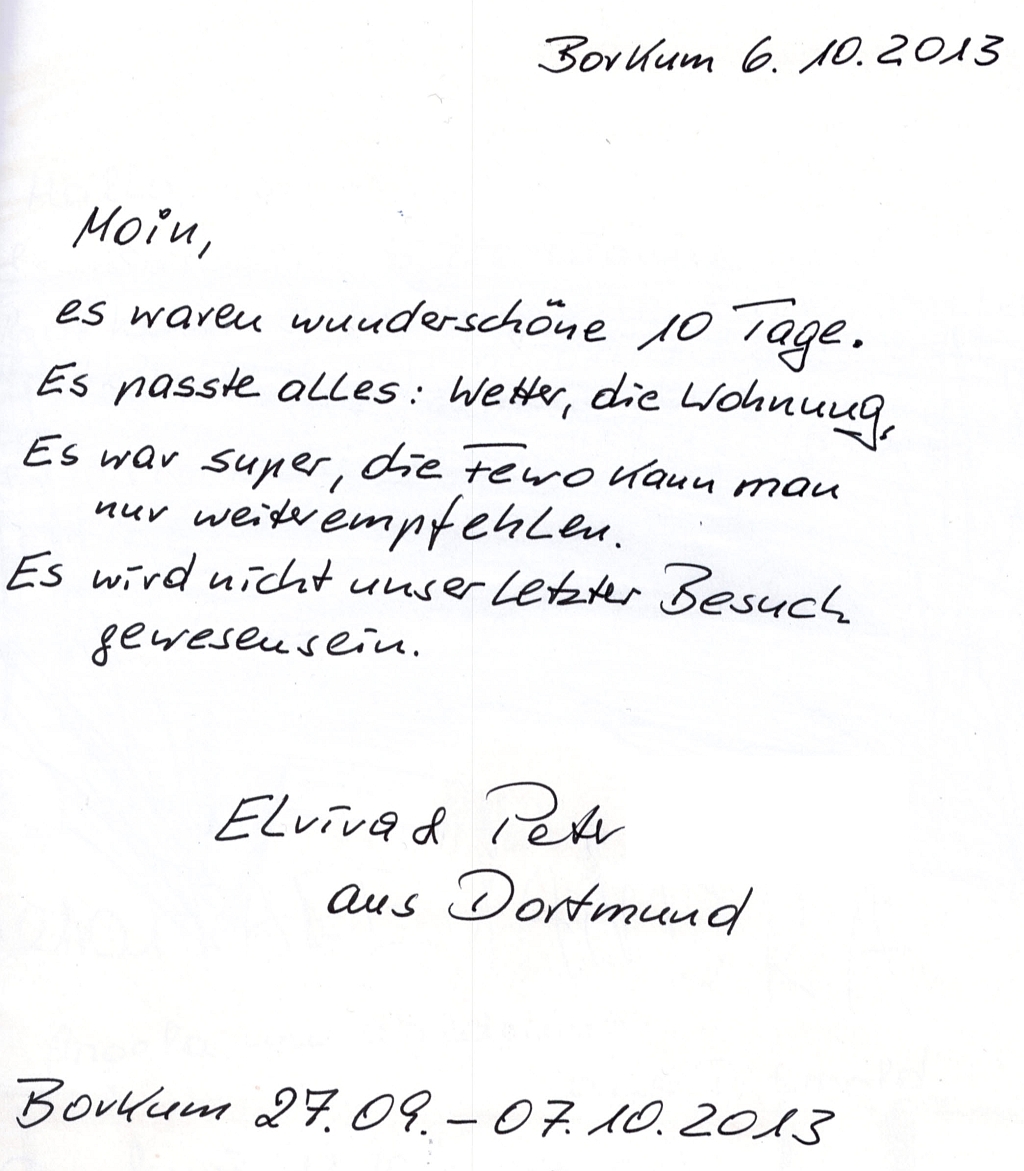 Borkum 6. 10. 2013
Moin,
es waren wunderschöne 10 Tage.
Es passte alles: Wetter, die Wohnung,
Es war super, die Fewo kann man
nur weiterempfehlen.
Es wird nicht unser letzter Besuch
gewesen sein.
Elvira & Petr
aus Dortmund
Borkum 27.09. – 07.10.2013